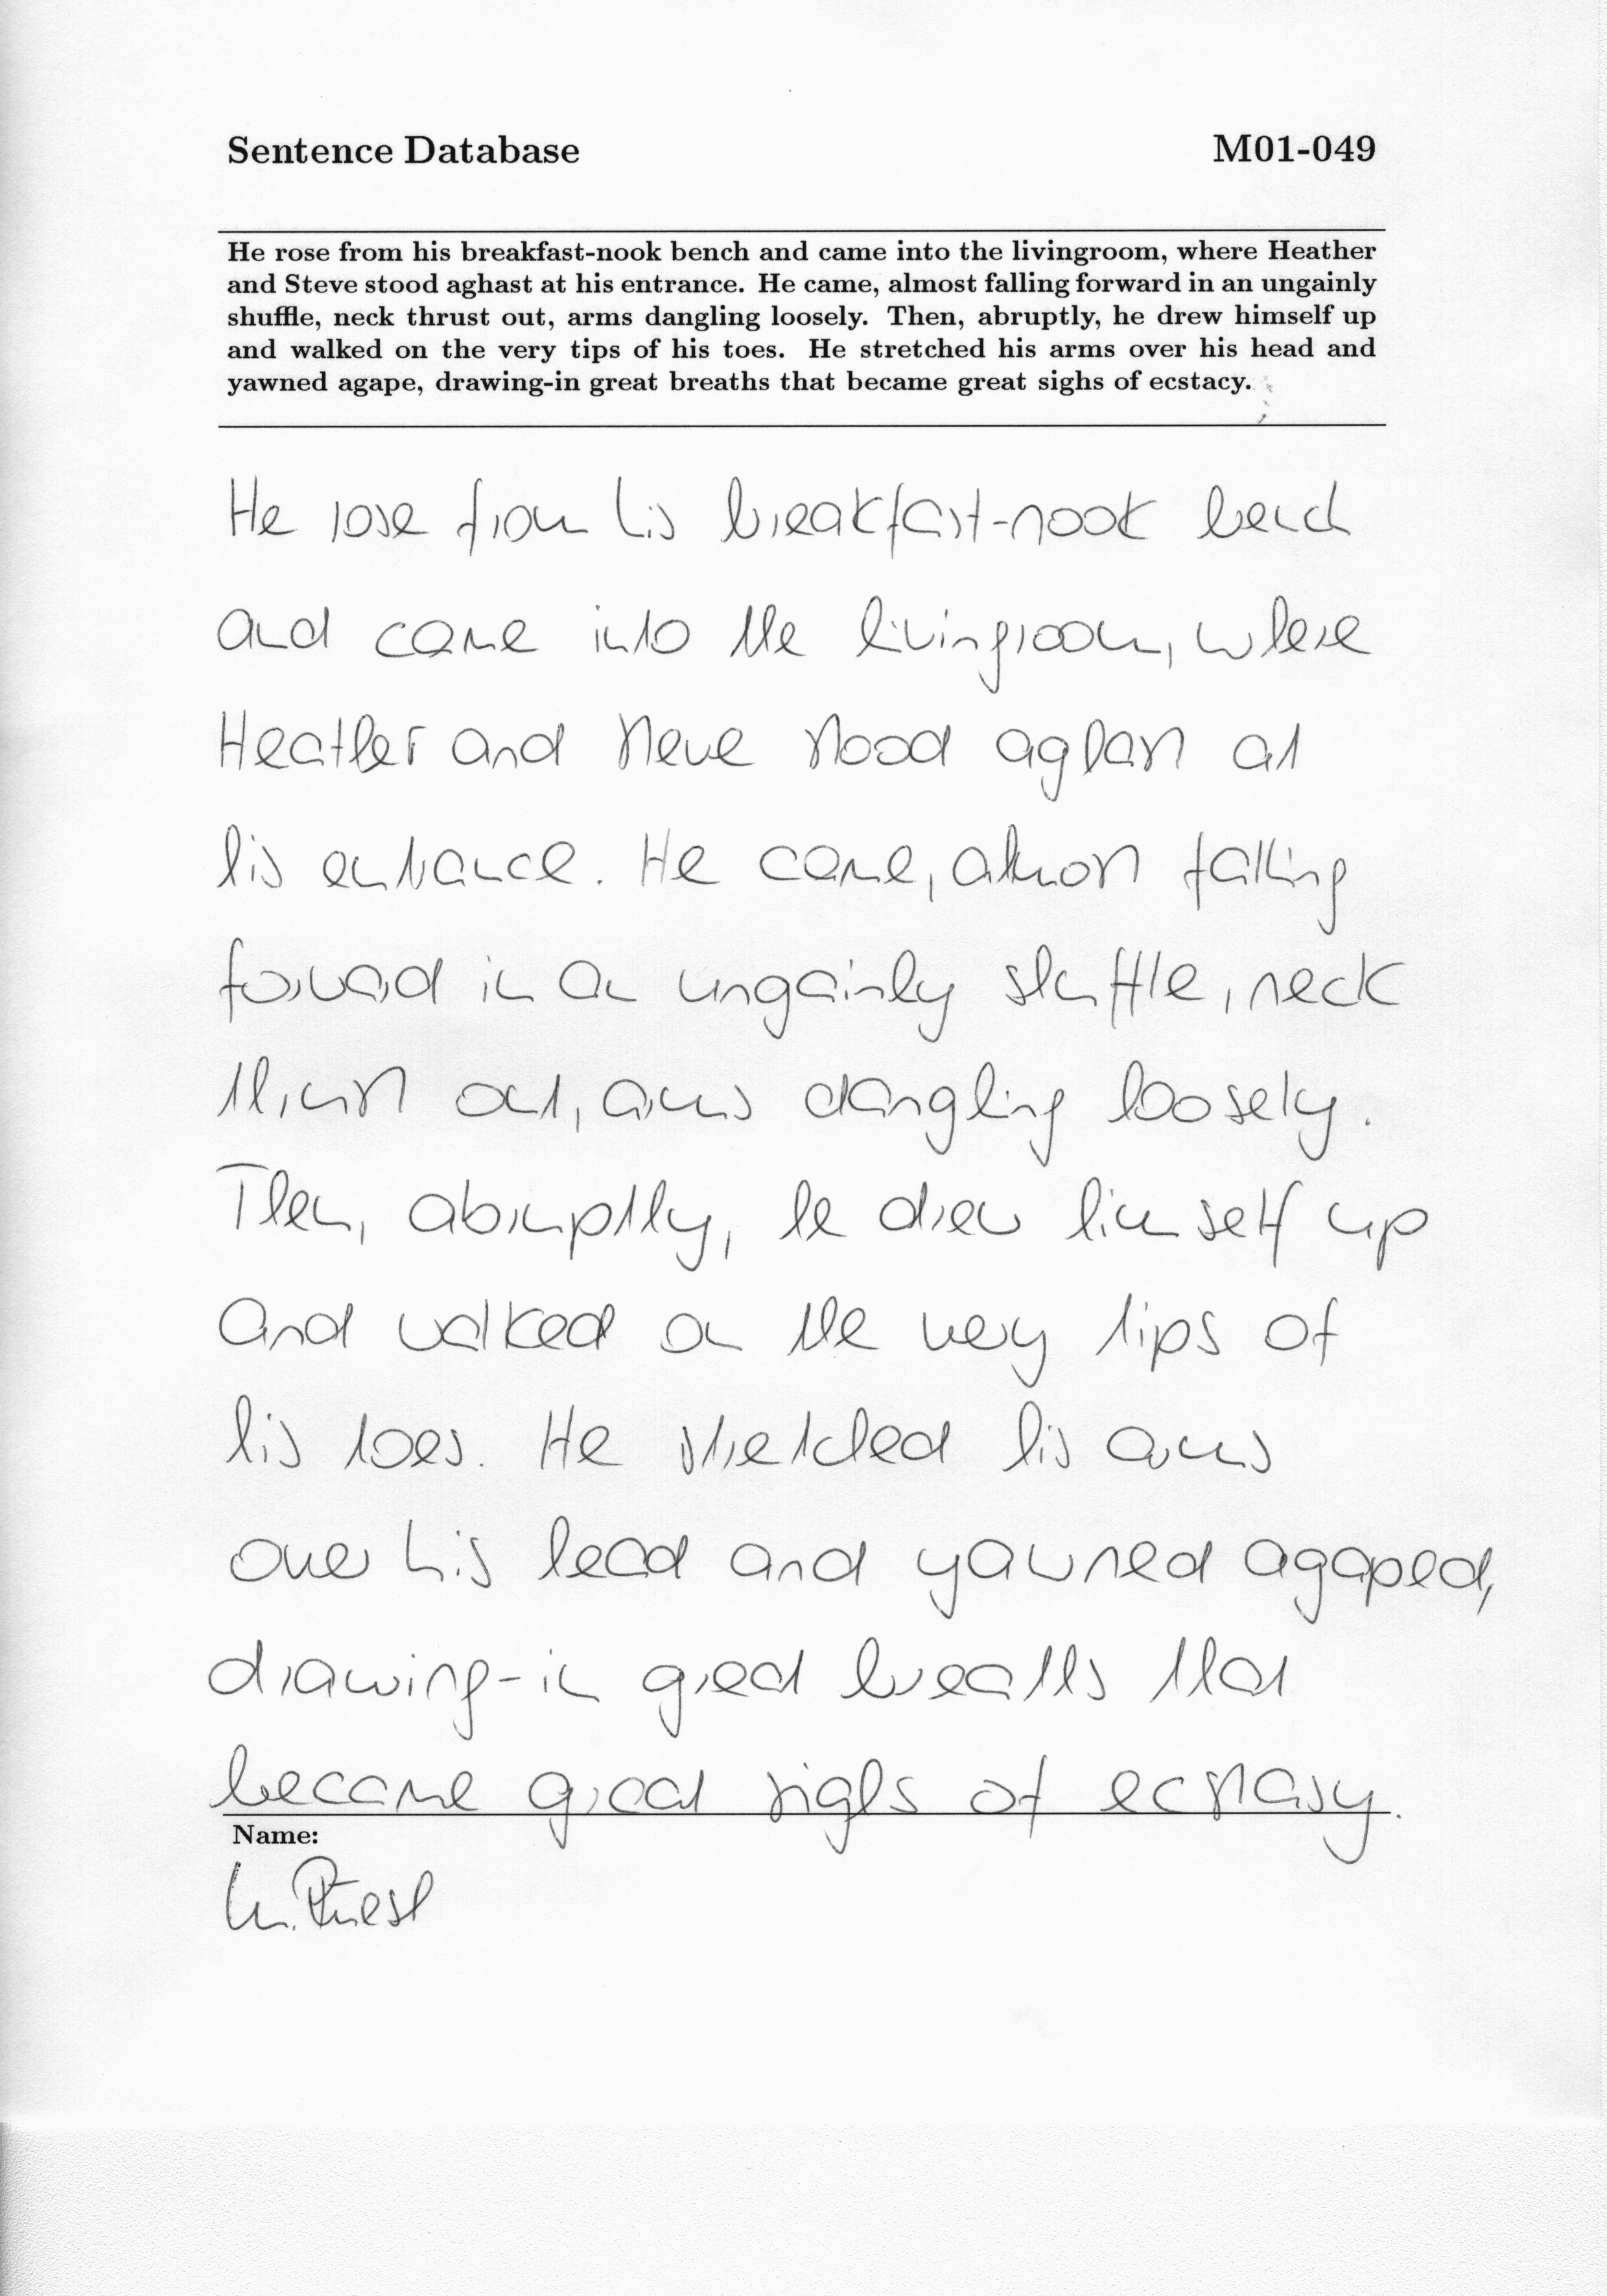 Sentence Database M01-049
He rose from his breakfast-nook bench and came into the livingroom, where Heather
and Steve stood aghast at his entrance. He came, almost falling forward in an ungainly
shuffle, neck thrust out, arms dangling loosely. Then, abruptly, he drew himself up
and walked on the very tips of his toes. He stretched his arms over his head and
yawned agape, drawing-in great breaths that became great sighs of ecstacy.
He rose from his breakfast-nook bench
and came into the livingroom, where
Heather and Steve stood aghast at
his entrance. He came, almost falling
forward in an ungainly shuffle, neck
thrust out, arms dangling loosely.
Then, abruptly, he drew himself up
and walked on the very tips of
his toes. He stretched his arms
over his head and yawned agaped,
drawing-in great breaths that
became great sighs of ecstasy.
Name: